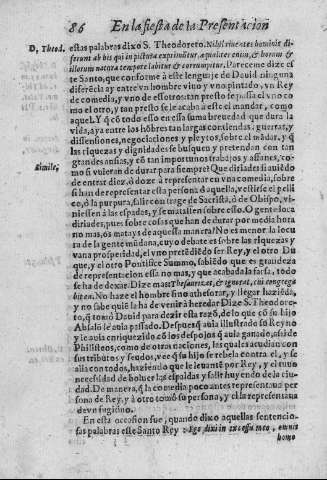 86 En la fiesta de la Presentacion
D, Theod. estas palabras dixo S. Theodoreto. Nihil viuentes homines dif-
ferunt ab bis qui in pictura exprimũtur, a qualitet enim, & horum &
illorum natura tempore labitur & corrumpitur. Pareceme dize es
te Santo, que conforme à este lenguaje de Dauid ninguna
diferẽcia ay entre vn hombre viuo y vno pintado, vn Rey
de comedia, y vno de essotros tan presto se passa el vno co
mo el otro, y tan presto se le acaba a este el mandar, como
aquel. Y q̃ cõ todo esso en essa suma breuedad que dura la
vida, aya entre los hõbres tan largas contiendas, guerras, y
dissensiones, negociaciones y pleytos, sobre el mãdar, y q̃
las riquezas y dignidades se busquen y pretendan con tan
grandes ansias, y cõ tan importunos trabajos y affanes, co-
Simile, mo si vuieran de durar para siempre? Que diriades si auiẽdo
de entrar diez, ò doze à representar en vna comedia, sobre
si han de representar esta persona ò aquella, vestirse el pelli
co, ò la purpura, salir con trage de Sacristã, ò de Obispo, vi-
niessen à las espadas, y se matassen sobre esso. O gente loca
diriades, pues sobre cosas que han de durar por media hora
no mas, os matays de aquessa manera? No es menor la locu
ra de la gente mũdana, cuyo debate es sobre las riquezas y
vana prosperidad, el vno pretẽdiẽdo ser Rey, y el otro Du
que, y el otro Pontifice Summo, sabiẽdo que es grandeza
de representacion essa no mas, y que acabada la farsa, todo
se ha de dexar. Dize mas: Thesaurizat, & ignorat, cui congrega
bit ea. No haze el hombre sino athesorar, y llegar haziẽda,
y no sabe quiẽ la ha de venir à heredar Dize S. Theodore-
to, q̃ tomò Dauid para dezir esta razõ, de lo que cõ su hijo
Absalõ le auia passado. Despues q̃ auia illustrado su Reyno
y le auia enriquezido cõ los despojos q̃ auia ganado, assi de
Philisteos, como de otras naciones, las quales acudian con
sus tributos y feudos, vee q̃ su hijo se rebela contra el, y se
alia con todos, haziendo que le leuantẽ por Rey, y el tuuo
necessidad de boluer las espaldas y salir huyendo de la ciu-
dad. De manera, q̃ la comedia poco antes representaua per
sona de Rey, y à otro tomò su persona, y el la representaua
de vn fugitiuo.
En esta occasion fue, quando aquellas sentencio-
sas palabras este Santo Rey : Ego dixi in excessu meo, omnis
homo